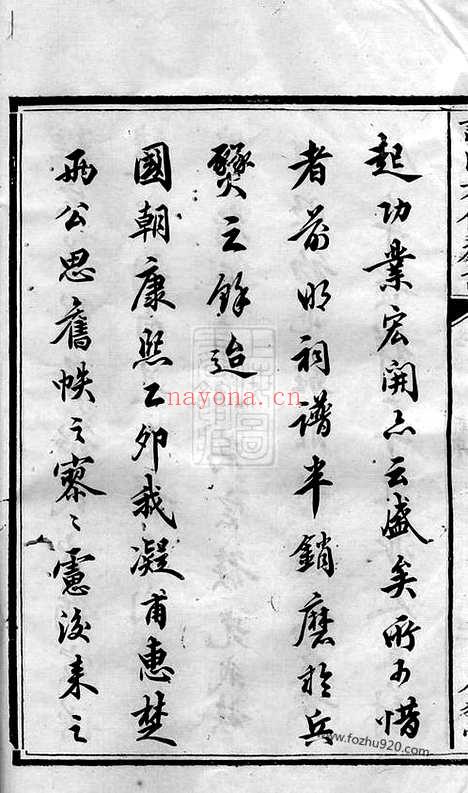 起功業宏開亦云盛矣所可惜
者前明祠譜半銷磨於兵
燹之餘迨
國朝康熙乙卯我凝甫惠楚
兩公思舊帙之寥寥慮後來之
nayona.cn
www.fozhu920.com